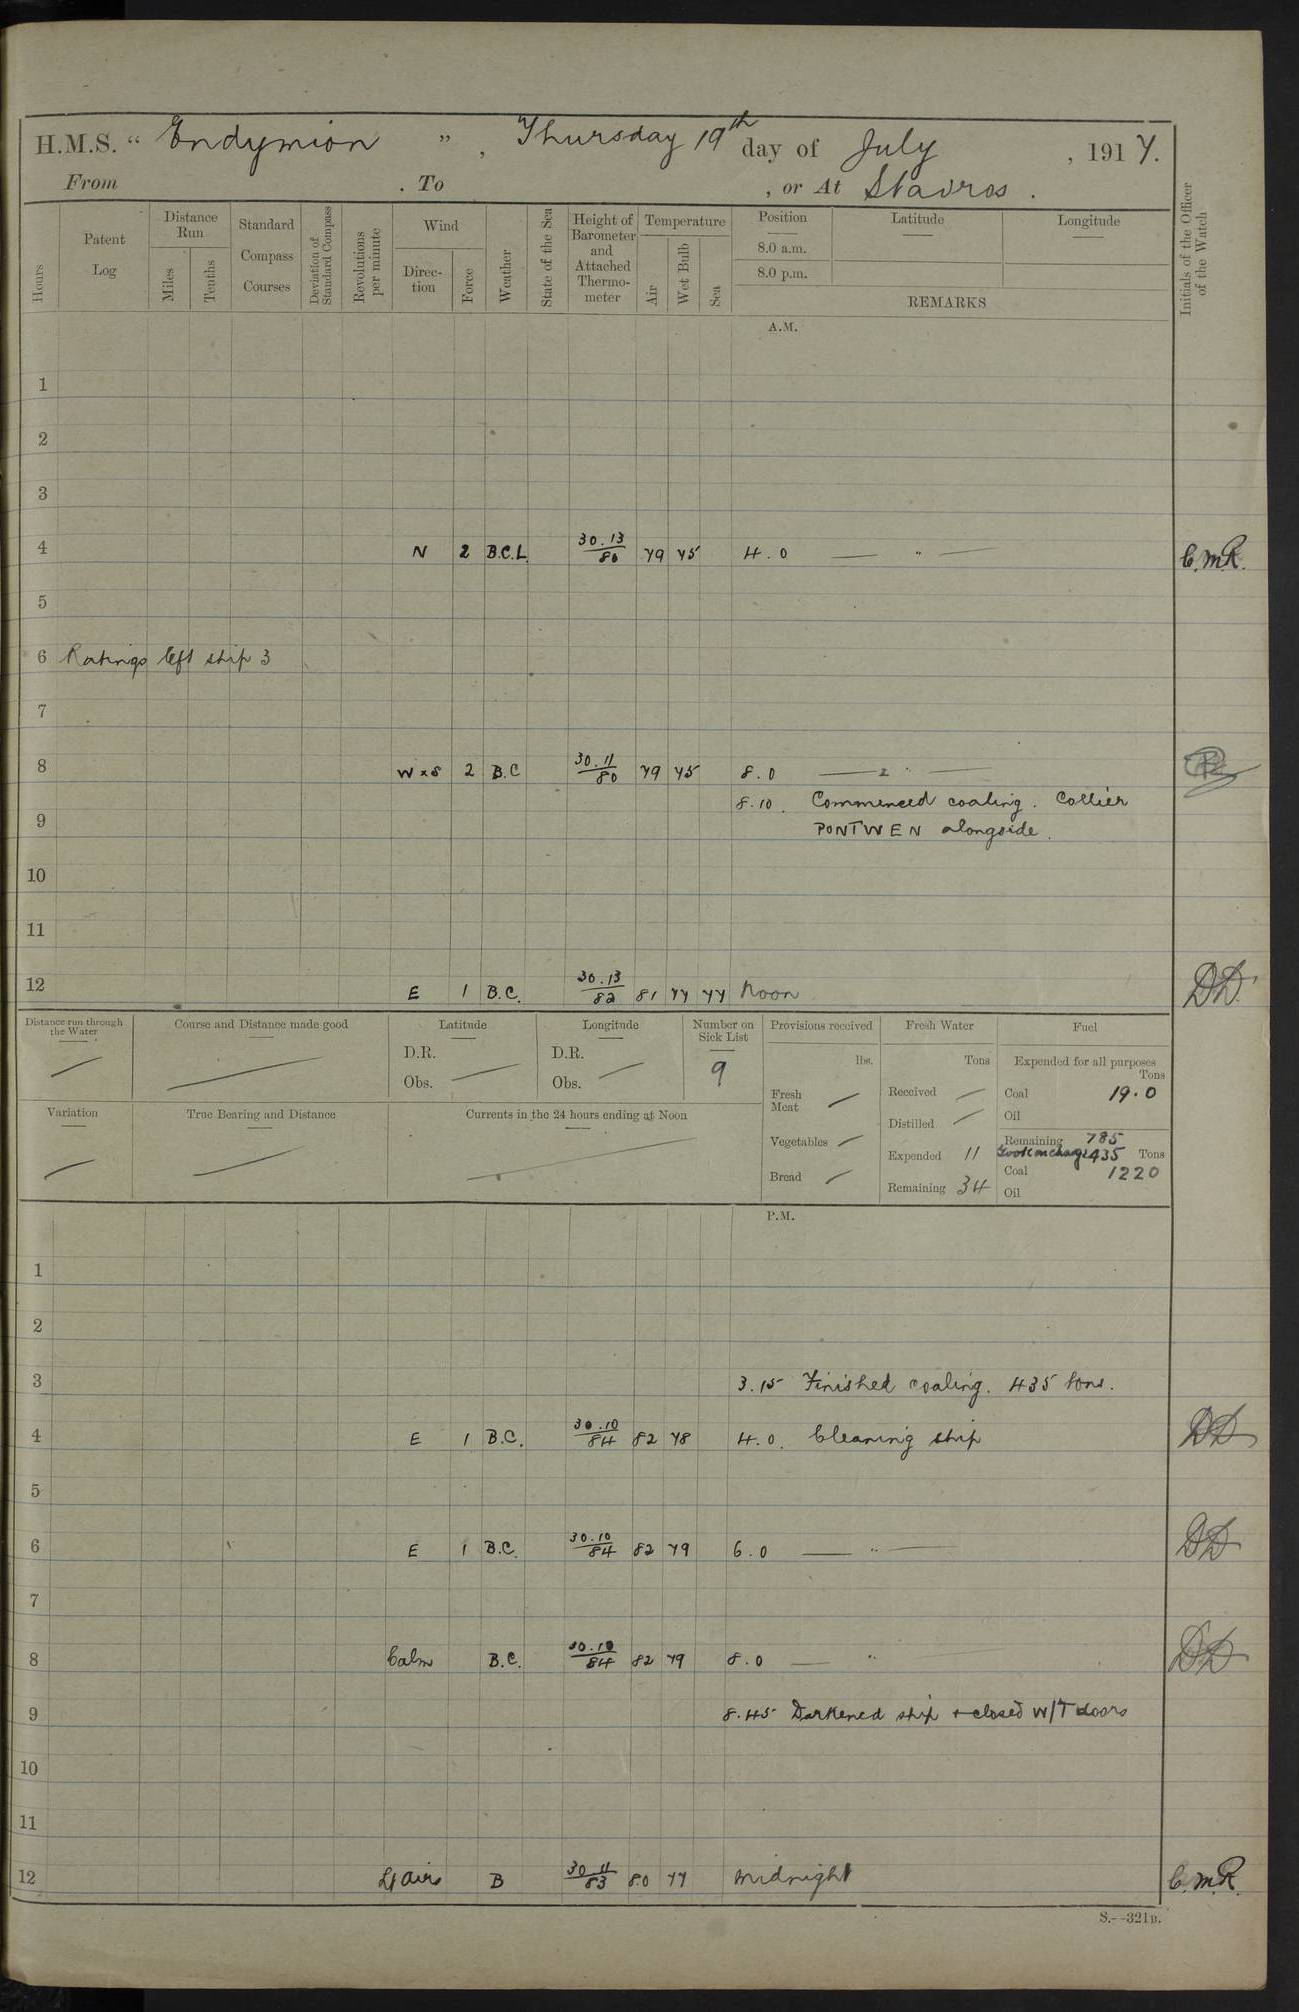 H.M.S. “ Endymion ” , Thursday 19th day of July , 1917.
From . To , or At Stavros .
Hours
Patent Log
Distance Run
Miles
Tenths
Standard Compass Courses
Deviation of Standard Compass
Revolutions per minute
Wind
Direc-tion
Force
Weather
State of the Sea
Height of Barometer and Attached Thermo-meter
Temperature
Air
Wet Bulb
Sea
Position
8.0 a.m.
8.0 p.m.
Latitude
Longitude
REMARKS
Initials of the Officer of the Watch
A.M.
1
2
3
4 N 2 B.C.L. 30.13/80 79 75 4.0 — " — C.M.R.
5
6 Ratings left ship 3
7
8 W x S 2 B.C 30.11/80 79 75 8.0 — " —
8.10. Commenced coaling. Collier
9 PONTWEN alongside.
10
11
12 E 1 B.C. 30.13/82 81 77 77 Noon DD.
Distance run through the Water
Course and Distance made good
Latitude
D.R.
Obs.
Longitude
D.R.
Obs.
Number on Sick List
9
Provisions received
lbs.
Fresh Meat
Vegetables
Bread
Fresh Water
Tons
Received
Distilled
Expended 11
Remaining 34
Fuel
Expended for all purposes
Tons
Coal 19.0
Oil
Remaining 785
Took on charge 435 Tons
Coal 1220
Oil
Variation
True Bearing and Distance
Currents in the 24 hours ending at Noon
P.M.
1
2
3 3.15 Finished coaling. 435 tons.
4 E 1 B.C. 30.10/84 82 78 4.0. Cleaning ship DD
5
6 E 1 B.C. 30.10/84 82 79 6.0 — " — DD
7
8 Calm B.C. 30.10/84 82 79 8.0 — " DD
9 8.45 Darkened ship + closed W/T doors
10
11
12 Lt airs B 30.11/83 80 77 Midnight C.M.R.
S.--321B.